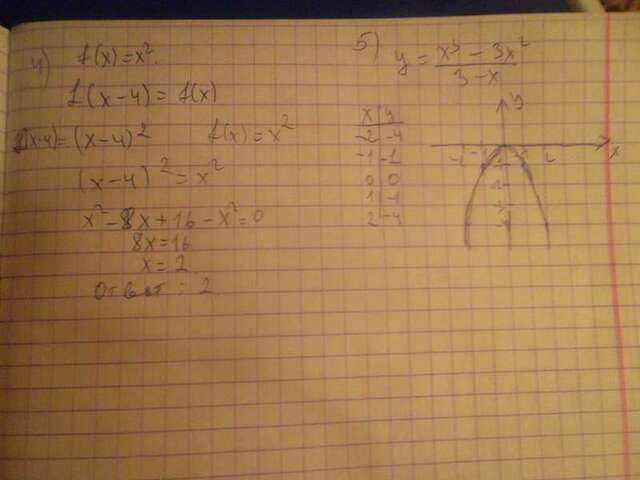 4) f(x)=x².
f(x-4)=f(x)
f(x-4)=(x-4)² f(x)=x²
(x-4)²=x²
x²-8x+16-x²=0
8x=16
x=2
Ответ: 2
5) y = (x³-3x²)/(3-x)
x | y
-2 | -4
-1 | -1
0 | 0
1 | -1
2 | -4
y
x